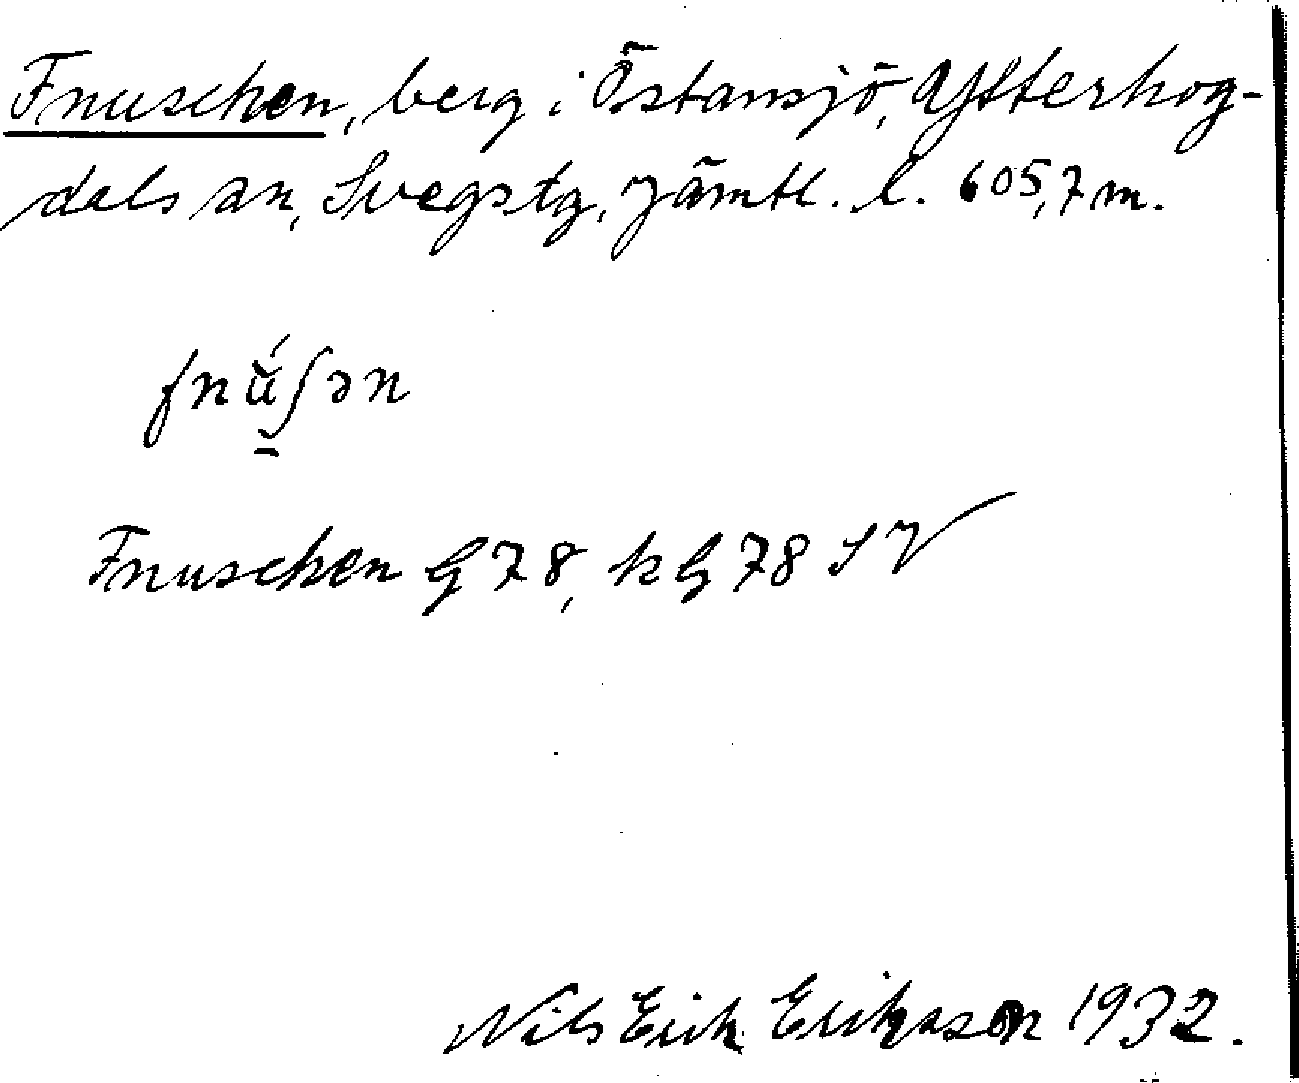 Fnuschen, berg i Östansjö, Ytterhog-
dals sn, Svegs tg, Jämtl. l. 605,7 m.
fnú̆ʃən
Fnuschen G 78, k G 78 S V
Nils Erik Eriksson 1932.